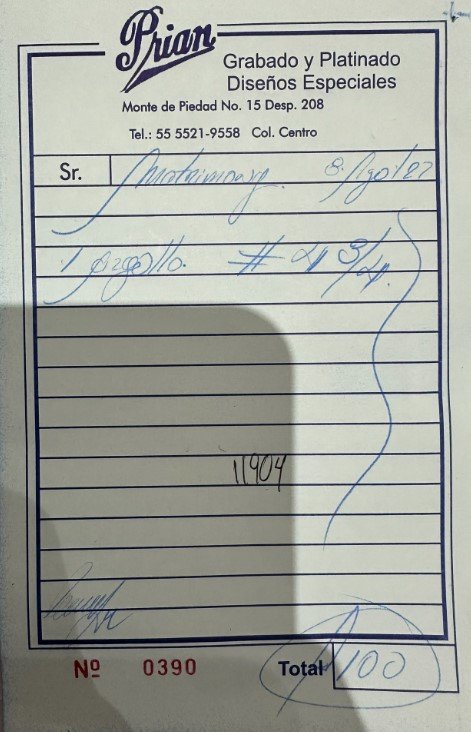 Prian
Grabado y Platinado
Diseños Especiales
Monte de Piedad No. 15 Desp. 208
Tel.: 55 5521-9558 Col. Centro
Sr. 8 Ago/
1 Argolla. # 4 3/4.
11904
Nº 0390 Total 100